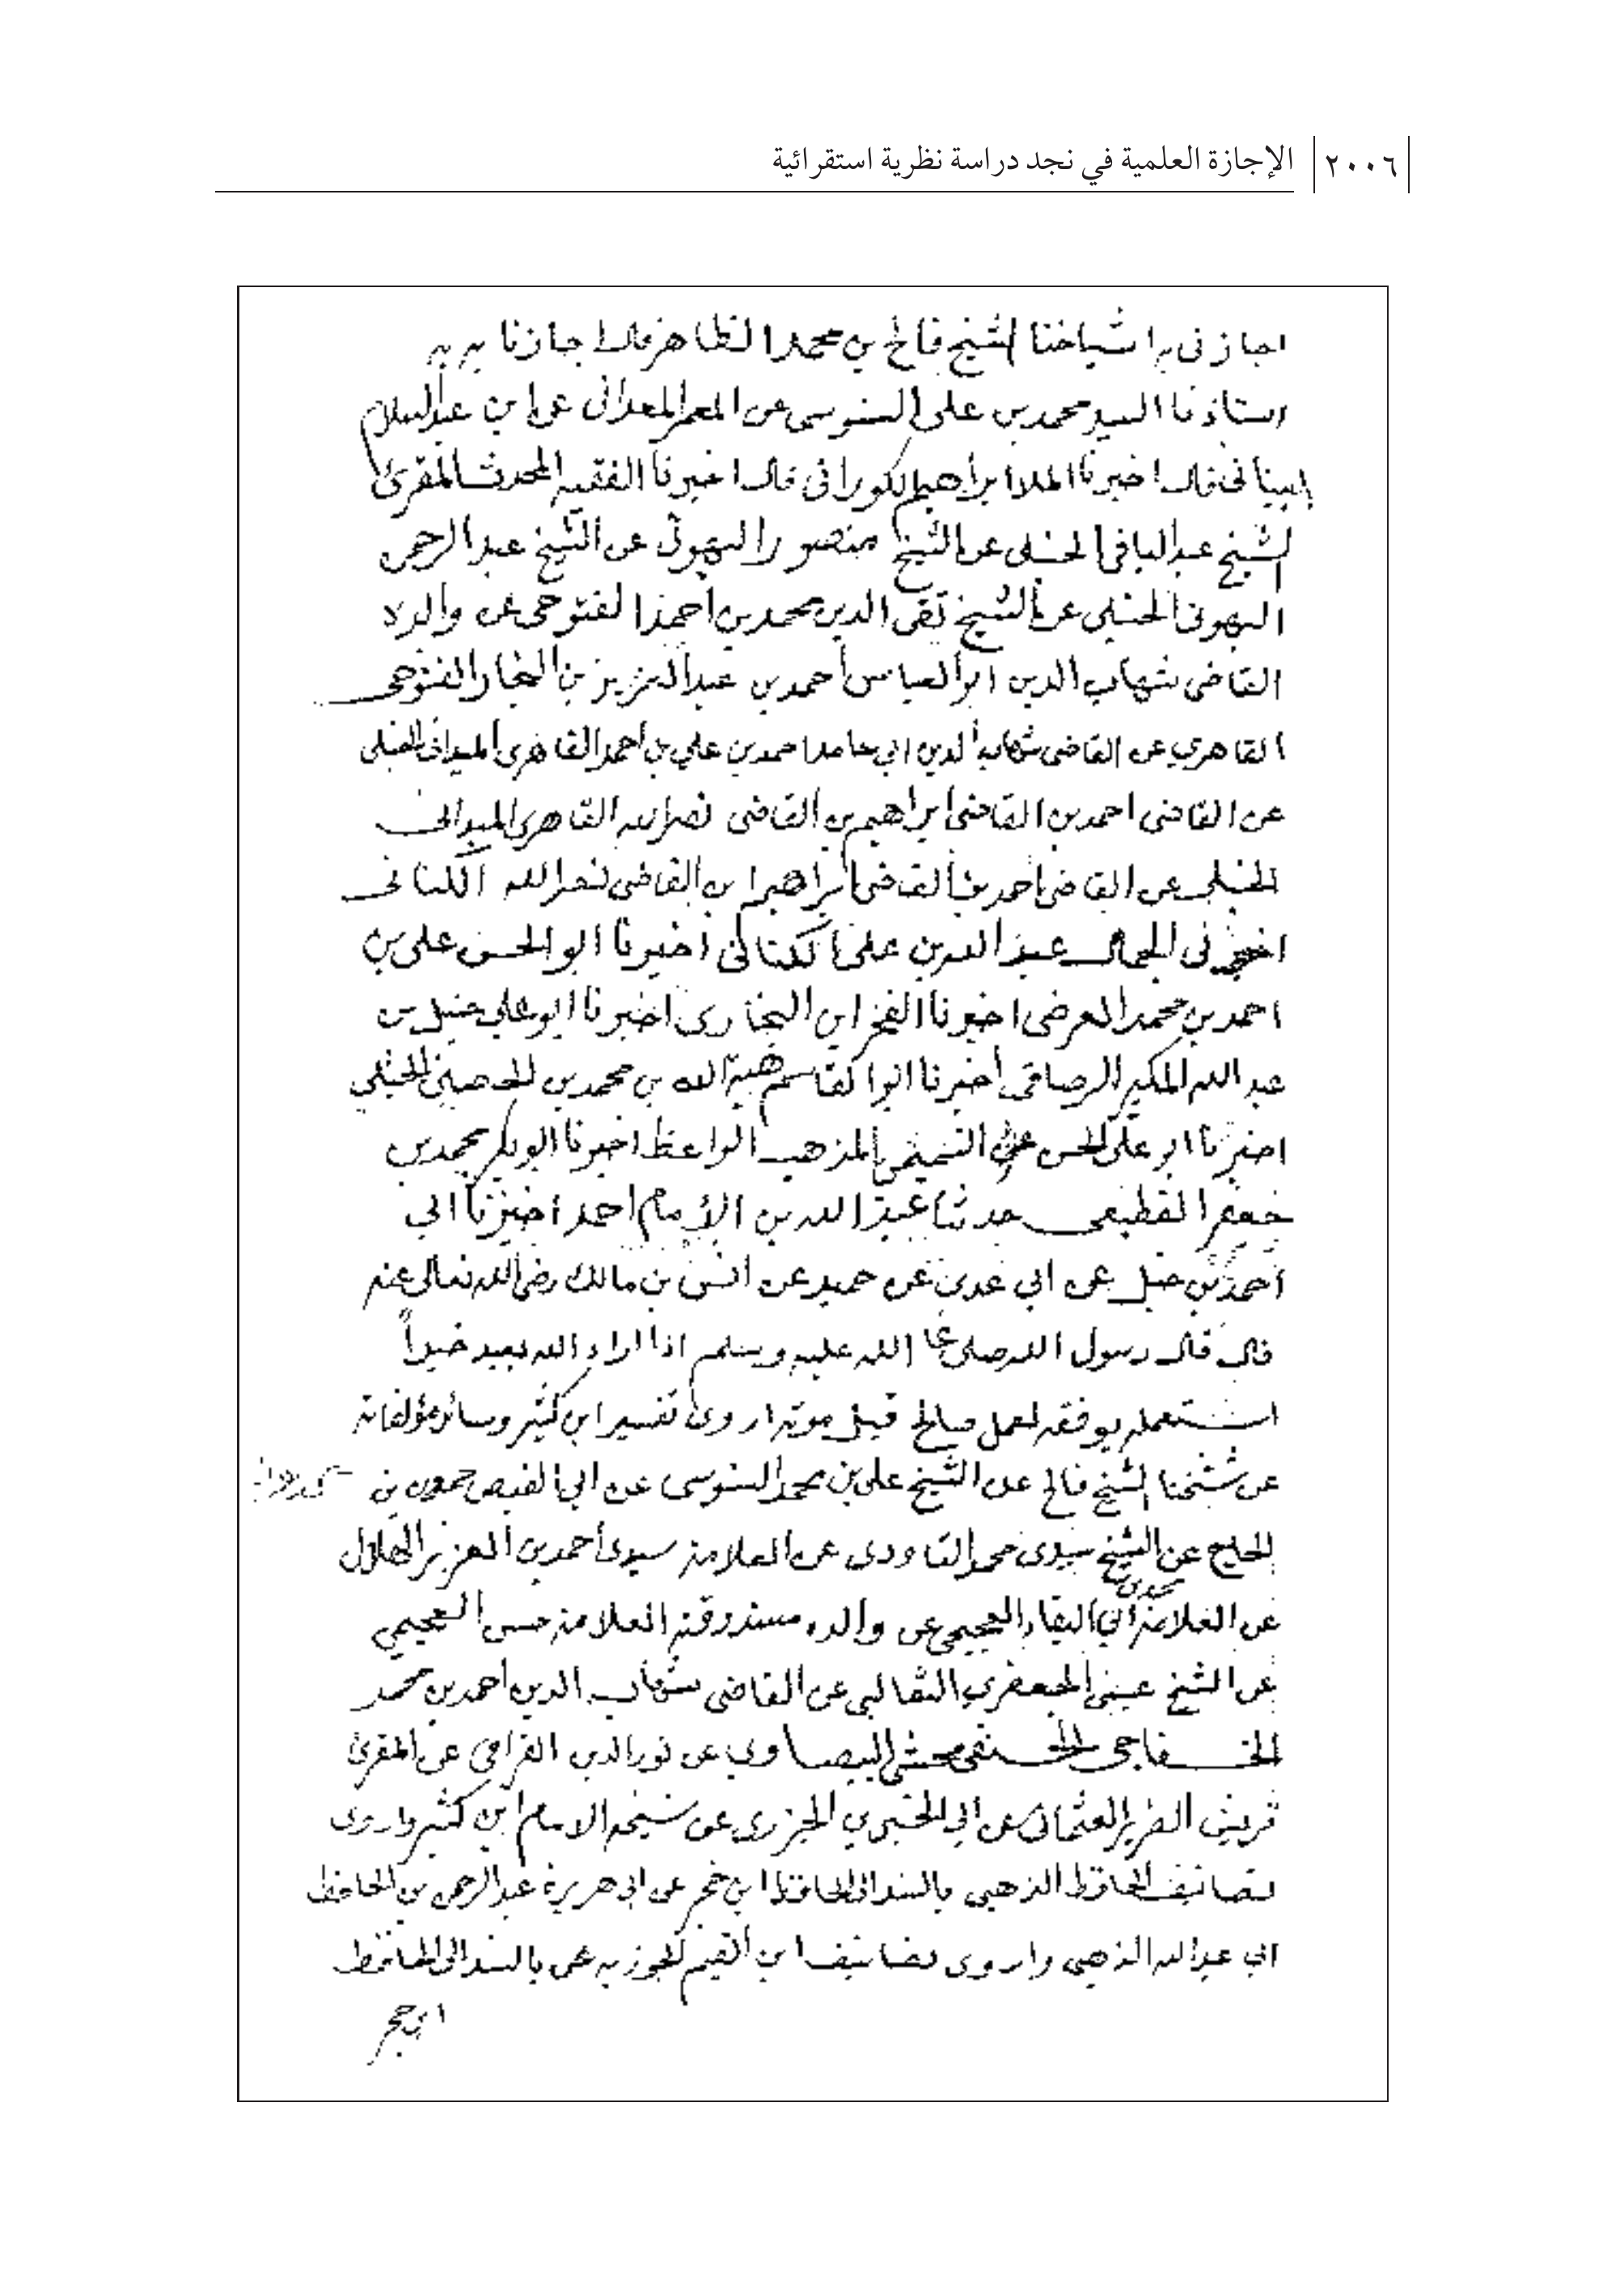 ٢٠٠٦ الإجازة العلمية في نجد دراسة نظرية استقرائية
اجازني به اشياخنا الشيخ فالح بن محمد الظاهر قال اجازنا به
استاذنا السيد محمد بن علي السنوسي عن المعمر عن ابن عبد السلام
البناني قال اخبرنا الملا ابراهيم الكوراني قال اخبرنا الفقيه المحدث المقرئ
الشيخ عبد الباقي الحنبلي عن الشيخ منصور البهوتي عن الشيخ عبد الرحمن
البهوتي الحنبلي عن الشيخ تقي الدين محمد بن أحمد الفتوحي عن والده
القاضي شهاب الدين ابو العباس أحمد بن عبد العزيز بن النجار الفتوحي
القاهري عن القاضي شهاب الدين ابي حامد احمد بن علي بن أحمد القاهري الميداني الحنبلي
عن القاضي احمد بن القاضي ابراهيم بن القاضي نصر الله القاهري
الحنبلي عن القاضي أحمد بن القاضي ابراهيم ابن القاضي نصر الله الكناني
الجمال عبد الله بن علي الكناني اخبرنا ابو الحسن علي بن
احمد بن محمد العرضي اخبرنا الفخر ابن البخاري اخبرنا ابو علي حنبل بن
عبد الله المكبر الرصافي أخبرنا ابو القاسم هبة الله بن محمد بن الحصين الحنبلي
اخبرنا ابو علي الحسن علي التميمي المذهب الواعظ اخبرنا ابو بكر محمد بن
جعفر القطيعي حدثنا عبد الله بن الإمام احمد اخبرنا ابي
أحمد بن حنبل عن ابي عدي عن حميد عن انس بن مالك رضي الله تعالى عنه
قال قال رسول الله صلى الله عليه وسلم اذا اراد الله بعبد خيراً
استعمله يوفقه لعمل صالح قبل موته اروي تفسير ابن كثير وسائر مؤلفاته
عن شيخنا الشيخ فالح عن الشيخ علي بن محمد السنوسي عن ابي الفيض حمدون بن
الحاج عن الشيخ سيدي محمد التاودي عن العلامة سيدي أحمد بن العزيز الهلالي
عن العلامة أبي البقاء العجيمي عن والده العلامة حسن العجيمي
عن الشيخ عيسى الجعفري الثعالبي عن القاضي شهاب الدين أحمد بن محمد
الخفاجي الحنفي محشي البيضاوي عن نور الدين القرافي عن المقرئ
قريش الضرير العثماني عن ابي الجزري عن شيخه الامام ابن كثير واروي
تصانيف الحافظ الذهبي بالسند الى الحافظ ابن حجر عن ابي هريرة عبد الرحمن بن الحافظ
ابي عبد الله الذهبي واروي تصانيف ابن القيم الجوزيه عن بالسند الى الحافظ
ابن حجر